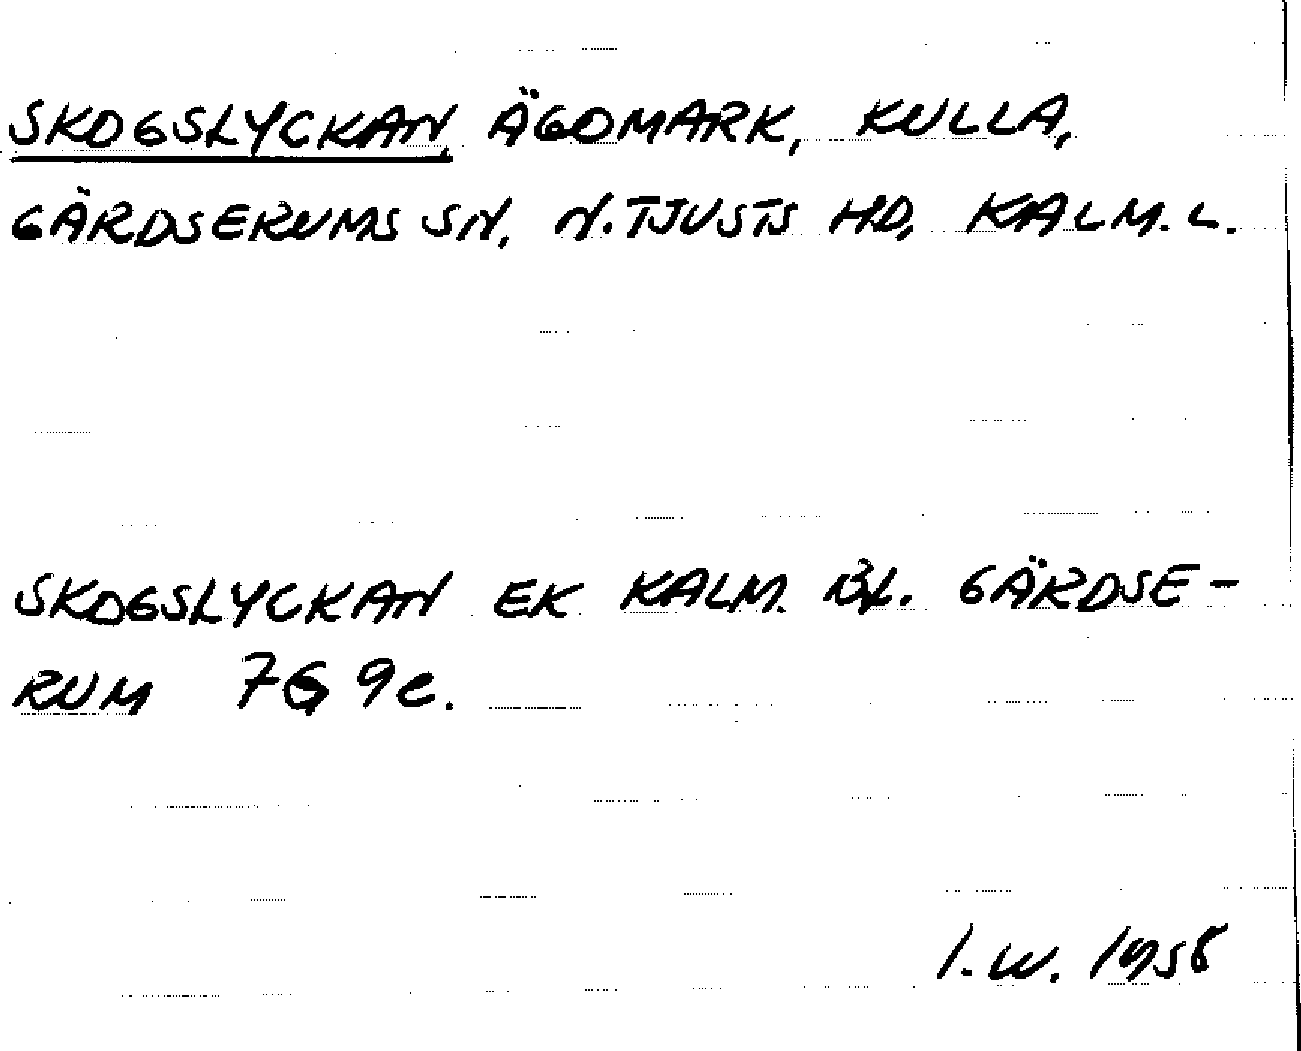 SKOGSLYCKAN, ÄGOMARK, KULLA,
GÄRDSERUMS SN, N. TJUSTS HD, KALM. L.
SKOGSLYCKAN EK KALM. BL. GÄRDSE-
RUM 7G 9c.
I. W. 1958